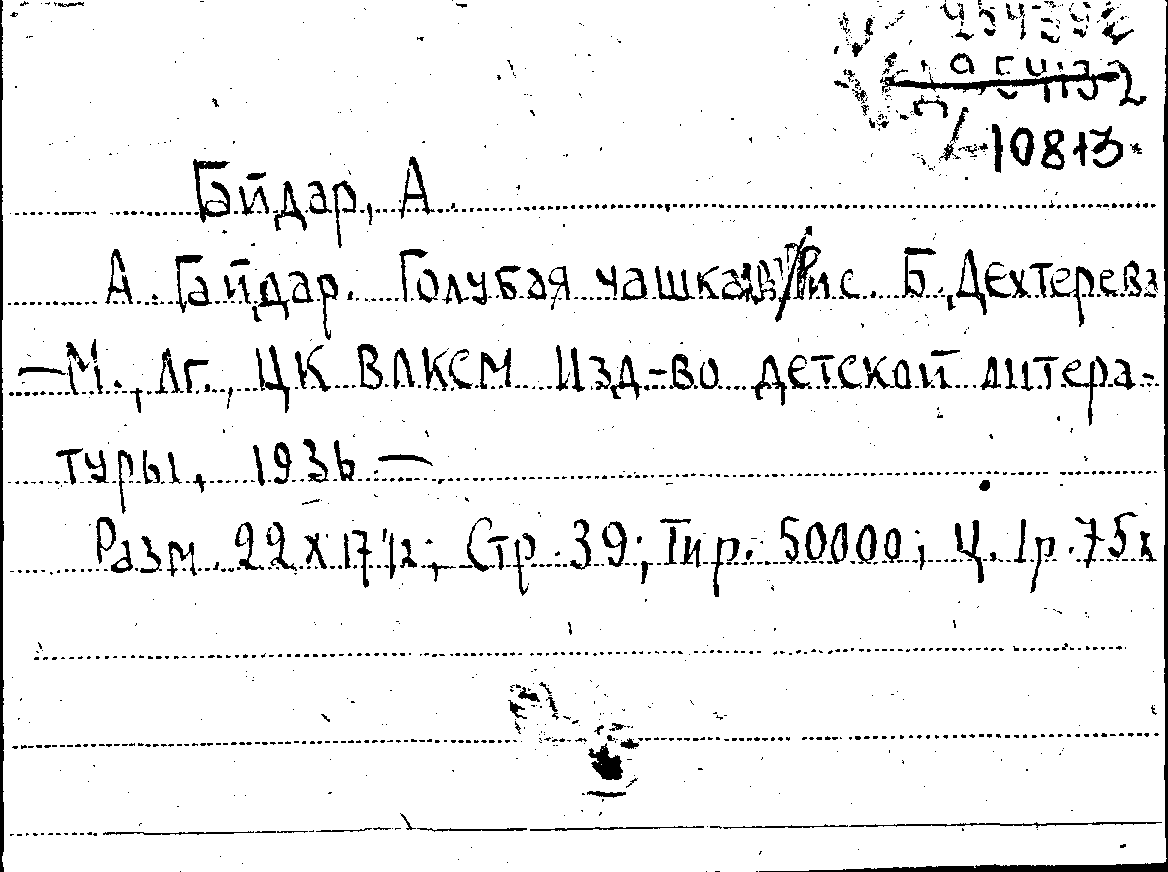 254392
10813
Гайдар, А.
А. Гайдар. Голубая чашка Рис. Б. Дехтерева
— М., Лг., ЦК ВЛКСМ Изд-во детской литера-
туры, 1936 —
Разм. 22 х 17 1/2; Стр. 39; Тир. 50000; Ц. 1р. 75к